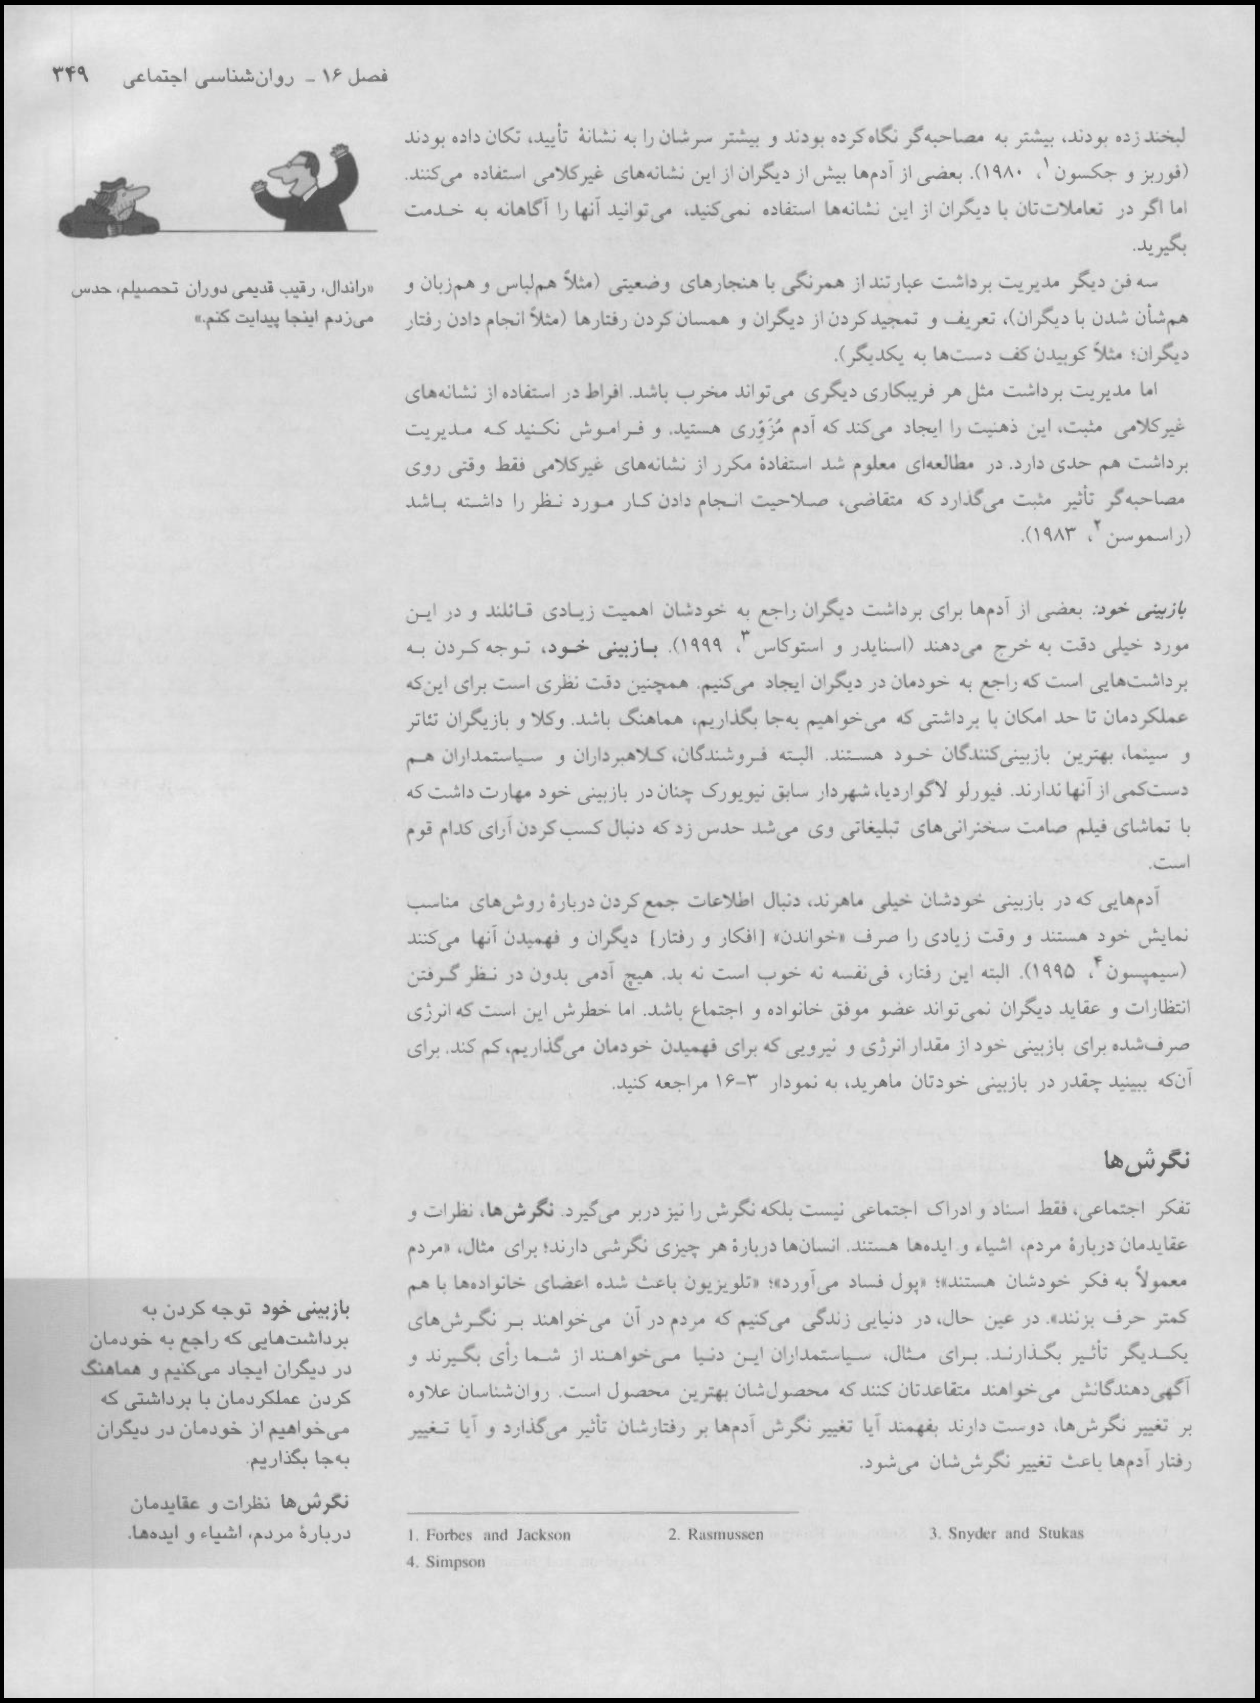 فصل ۱۶ ـ روان‌شناسی اجتماعی ۳۴۹
لبخند زده بودند، بیشتر به مصاحبه‌گر نگاه کرده بودند و بیشتر سرشان را به نشانهٔ تأیید، تکان داده بودند
(فوربز و جکسون۱، ۱۹۸۰). بعضی از آدم‌ها بیش از دیگران از این نشانه‌های غیرکلامی استفاده می‌کنند.
اما اگر در تعاملات‌تان با دیگران از این نشانه‌ها استفاده نمی‌کنید، می‌توانید آنها را آگاهانه به خدمت
بگیرید.
سه فن دیگر مدیریت برداشت عبارتند از همرنگی با هنجارهای وضعیتی (مثلاً هم‌لباس و هم‌زبان و
هم‌شأن شدن با دیگران)، تعریف و تمجید کردن از دیگران و همسان کردن رفتارها (مثلاً انجام دادن رفتار
دیگران؛ مثلاً کوبیدن کف دست‌ها به یکدیگر).
اما مدیریت برداشت مثل هر فریبکاری دیگری می‌تواند مخرب باشد. افراط در استفاده از نشانه‌های
غیرکلامی مثبت، این ذهنیت را ایجاد می‌کند که آدم مُزَوِّری هستید. و فراموش نکنید که مدیریت
برداشت هم حدی دارد. در مطالعه‌ای معلوم شد استفادهٔ مکرر از نشانه‌های غیرکلامی فقط وقتی روی
مصاحبه‌گر تأثیر مثبت می‌گذارد که متقاضی، صلاحیت انجام دادن کار مورد نظر را داشته باشد
(راسموسن۲، ۱۹۸۳).
بازبینی خود: بعضی از آدم‌ها برای برداشت دیگران راجع به خودشان اهمیت زیادی قائلند و در این
مورد خیلی دقت به خرج می‌دهند (اسنایدر و استوکاس۳، ۱۹۹۹). بازبینی خود، توجه کردن به
برداشت‌هایی است که راجع به خودمان در دیگران ایجاد می‌کنیم. همچنین دقت نظری است برای این‌که
عملکردمان تا حد امکان با برداشتی که می‌خواهیم به‌جا بگذاریم، هماهنگ باشد. وکلا و بازیگران تئاتر
و سینما، بهترین بازبینی‌کنندگان خود هستند. البته فروشندگان، کلاهبرداران و سیاستمداران هم
دست‌کمی از آنها ندارند. فیورلو لاگواردیا، شهردار سابق نیویورک چنان در بازبینی خود مهارت داشت که
با تماشای فیلم صامت سخنرانی‌های تبلیغاتی وی می‌شد حدس زد که دنبال کسب کردن آرای کدام قوم
است.
آدم‌هایی که در بازبینی خودشان خیلی ماهرند، دنبال اطلاعات جمع کردن دربارهٔ روش‌های مناسب
نمایش خود هستند و وقت زیادی را صرف «خواندن» [افکار و رفتار] دیگران و فهمیدن آنها می‌کنند
(سیمپسون۴، ۱۹۹۵). البته این رفتار، فی‌نفسه نه خوب است نه بد. هیچ آدمی بدون در نظر گرفتن
انتظارات و عقاید دیگران نمی‌تواند عضو موفق خانواده و اجتماع باشد. اما خطرش این است که انرژی
صرف‌شده برای بازبینی خود از مقدار انرژی و نیرویی که برای فهمیدن خودمان می‌گذاریم، کم کند. برای
آن‌که ببینید چقدر در بازبینی خودتان ماهرید، به نمودار ۳-۱۶ مراجعه کنید.
نگرش‌ها
تفکر اجتماعی، فقط اسناد و ادراک اجتماعی نیست بلکه نگرش را نیز دربر می‌گیرد. نگرش‌ها، نظرات و
عقایدمان دربارهٔ مردم، اشیاء و ایده‌ها هستند. انسان‌ها دربارهٔ هر چیزی نگرشی دارند؛ برای مثال، «مردم
معمولاً به فکر خودشان هستند»؛ «پول فساد می‌آورد»؛ «تلویزیون باعث شده اعضای خانواده‌ها با هم
کمتر حرف بزنند». در عین حال، در دنیایی زندگی می‌کنیم که مردم در آن می‌خواهند بر نگرش‌های
یکدیگر تأثیر بگذارند. برای مثال، سیاستمداران این دنیا می‌خواهند از شما رأی بگیرند و
آگهی‌دهندگانش می‌خواهند متقاعدتان کنند که محصول‌شان بهترین محصول است. روان‌شناسان علاوه
بر تغییر نگرش‌ها، دوست دارند بفهمند آیا تغییر نگرش آدم‌ها بر رفتارشان تأثیر می‌گذارد و آیا تغییر
رفتار آدم‌ها باعث تغییر نگرش‌شان می‌شود.
«راندال، رقیب قدیمی دوران تحصیلم، حدس
می‌زدم اینجا پیدایت کنم.»
بازبینی خود توجه کردن به
برداشت‌هایی که راجع به خودمان
در دیگران ایجاد می‌کنیم و هماهنگ
کردن عملکردمان با برداشتی که
می‌خواهیم از خودمان در دیگران
به‌جا بگذاریم.
نگرش‌ها نظرات و عقایدمان
دربارهٔ مردم، اشیاء و ایده‌ها.
1. Forbes and Jackson 2. Rasmussen 3. Snyder and Stukas
4. Simpson